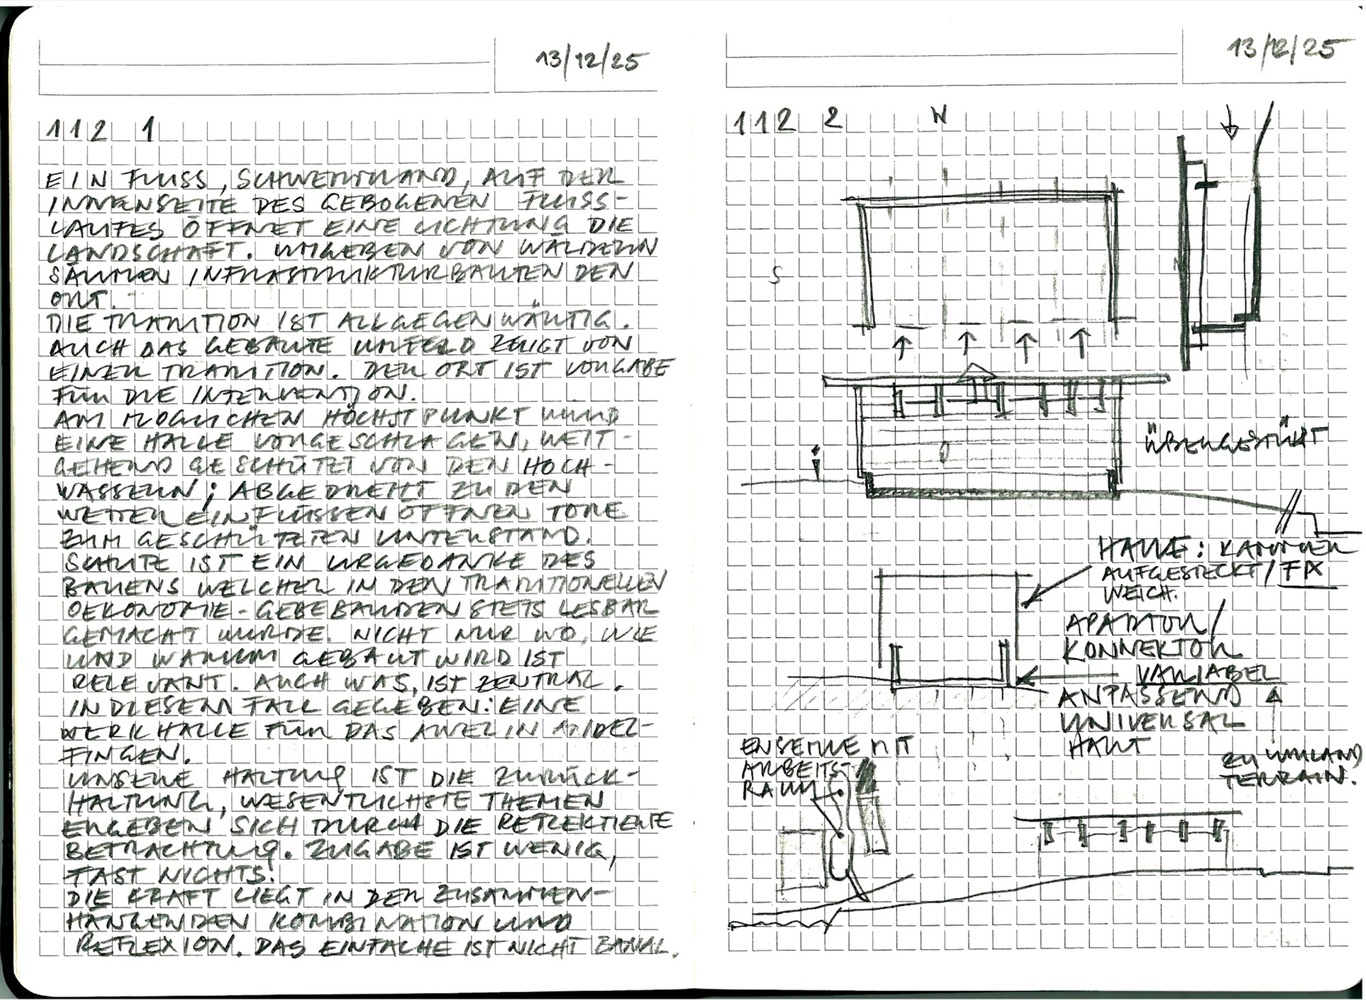 13/12/25
112 1
EIN FLUSS, SCHWEMMLAND, AUF DER
INNENSEITE DES GEBOGENEN FLUSS-
LAUFES ÖFFNET EINE LICHTUNG DIE
LANDSCHAFT. UMGEBEN VON WÄLDERN
SÄUMEN INFRASTRUKTURBAUTEN DEN
ORT.
DIE TRADITION IST ALLGEGENWÄRTIG.
AUCH DAS GEBAUTE UMFELD ZEUGT VON
EINER TRADITION. DER ORT IST VORGABE
FÜR DIE INTERVENTION.
AM MÖGLICHEN HÖCHSTPUNKT WIRD
EINE HALLE VORGESCHLAGEN, WEIT-
GEHEND GESCHÜTZT VON DEN HOCH-
WASSERN; ABGEDREHT ZU DEN
WETTEREINFLÜSSEN ÖFFNEN TORE
ZUM GESCHÜTZTEN UNTERSTAND.
SCHUTZ IST EIN URGEDANKE DES
BAUENS WELCHER IN DEN TRADITIONELLEN
OEKONOMIE-GEBEBAUDEN STETS LESBAR
GEMACHT WURDE. NICHT NUR WO, WIE
UND WARUM GEBAUT WIRD IST
RELEVANT. AUCH WAS, IST ZENTRAL.
IN DIESEM FALL GEGEBEN: EINE
WERKHALLE FÜR DAS AWEL IN
FINGEN.
UNSERE HALTUNG IST DIE ZURÜCK-
HALTUNG, WESENTLICHSTE THEMEN
ERGEBEN SICH DURCH DIE REFLEKTIERTE
BETRACHTUNG. ZUGABE IST WENIG,
FAST NICHTS!
DIE KRAFT LIEGT IN DER ZUSAMMEN-
HÄNGENDEN KOMBINATION UND
REFLEXION. DAS EINFACHE IST NICHT BANAL.
13/12/25
112 2 N
S
ÜBERGESTÜLPT
HALLE: KAMMER
AUFGESTECKT/FIX
WEICH.
ADAPTOR/
KONNEKTOR
VARIABEL
ANPASSEND
UNIVERSAL
HAUT
ZU UMLAND
TERRAIN.
ENSEMLE MIT
ARBEITS-
RAUM